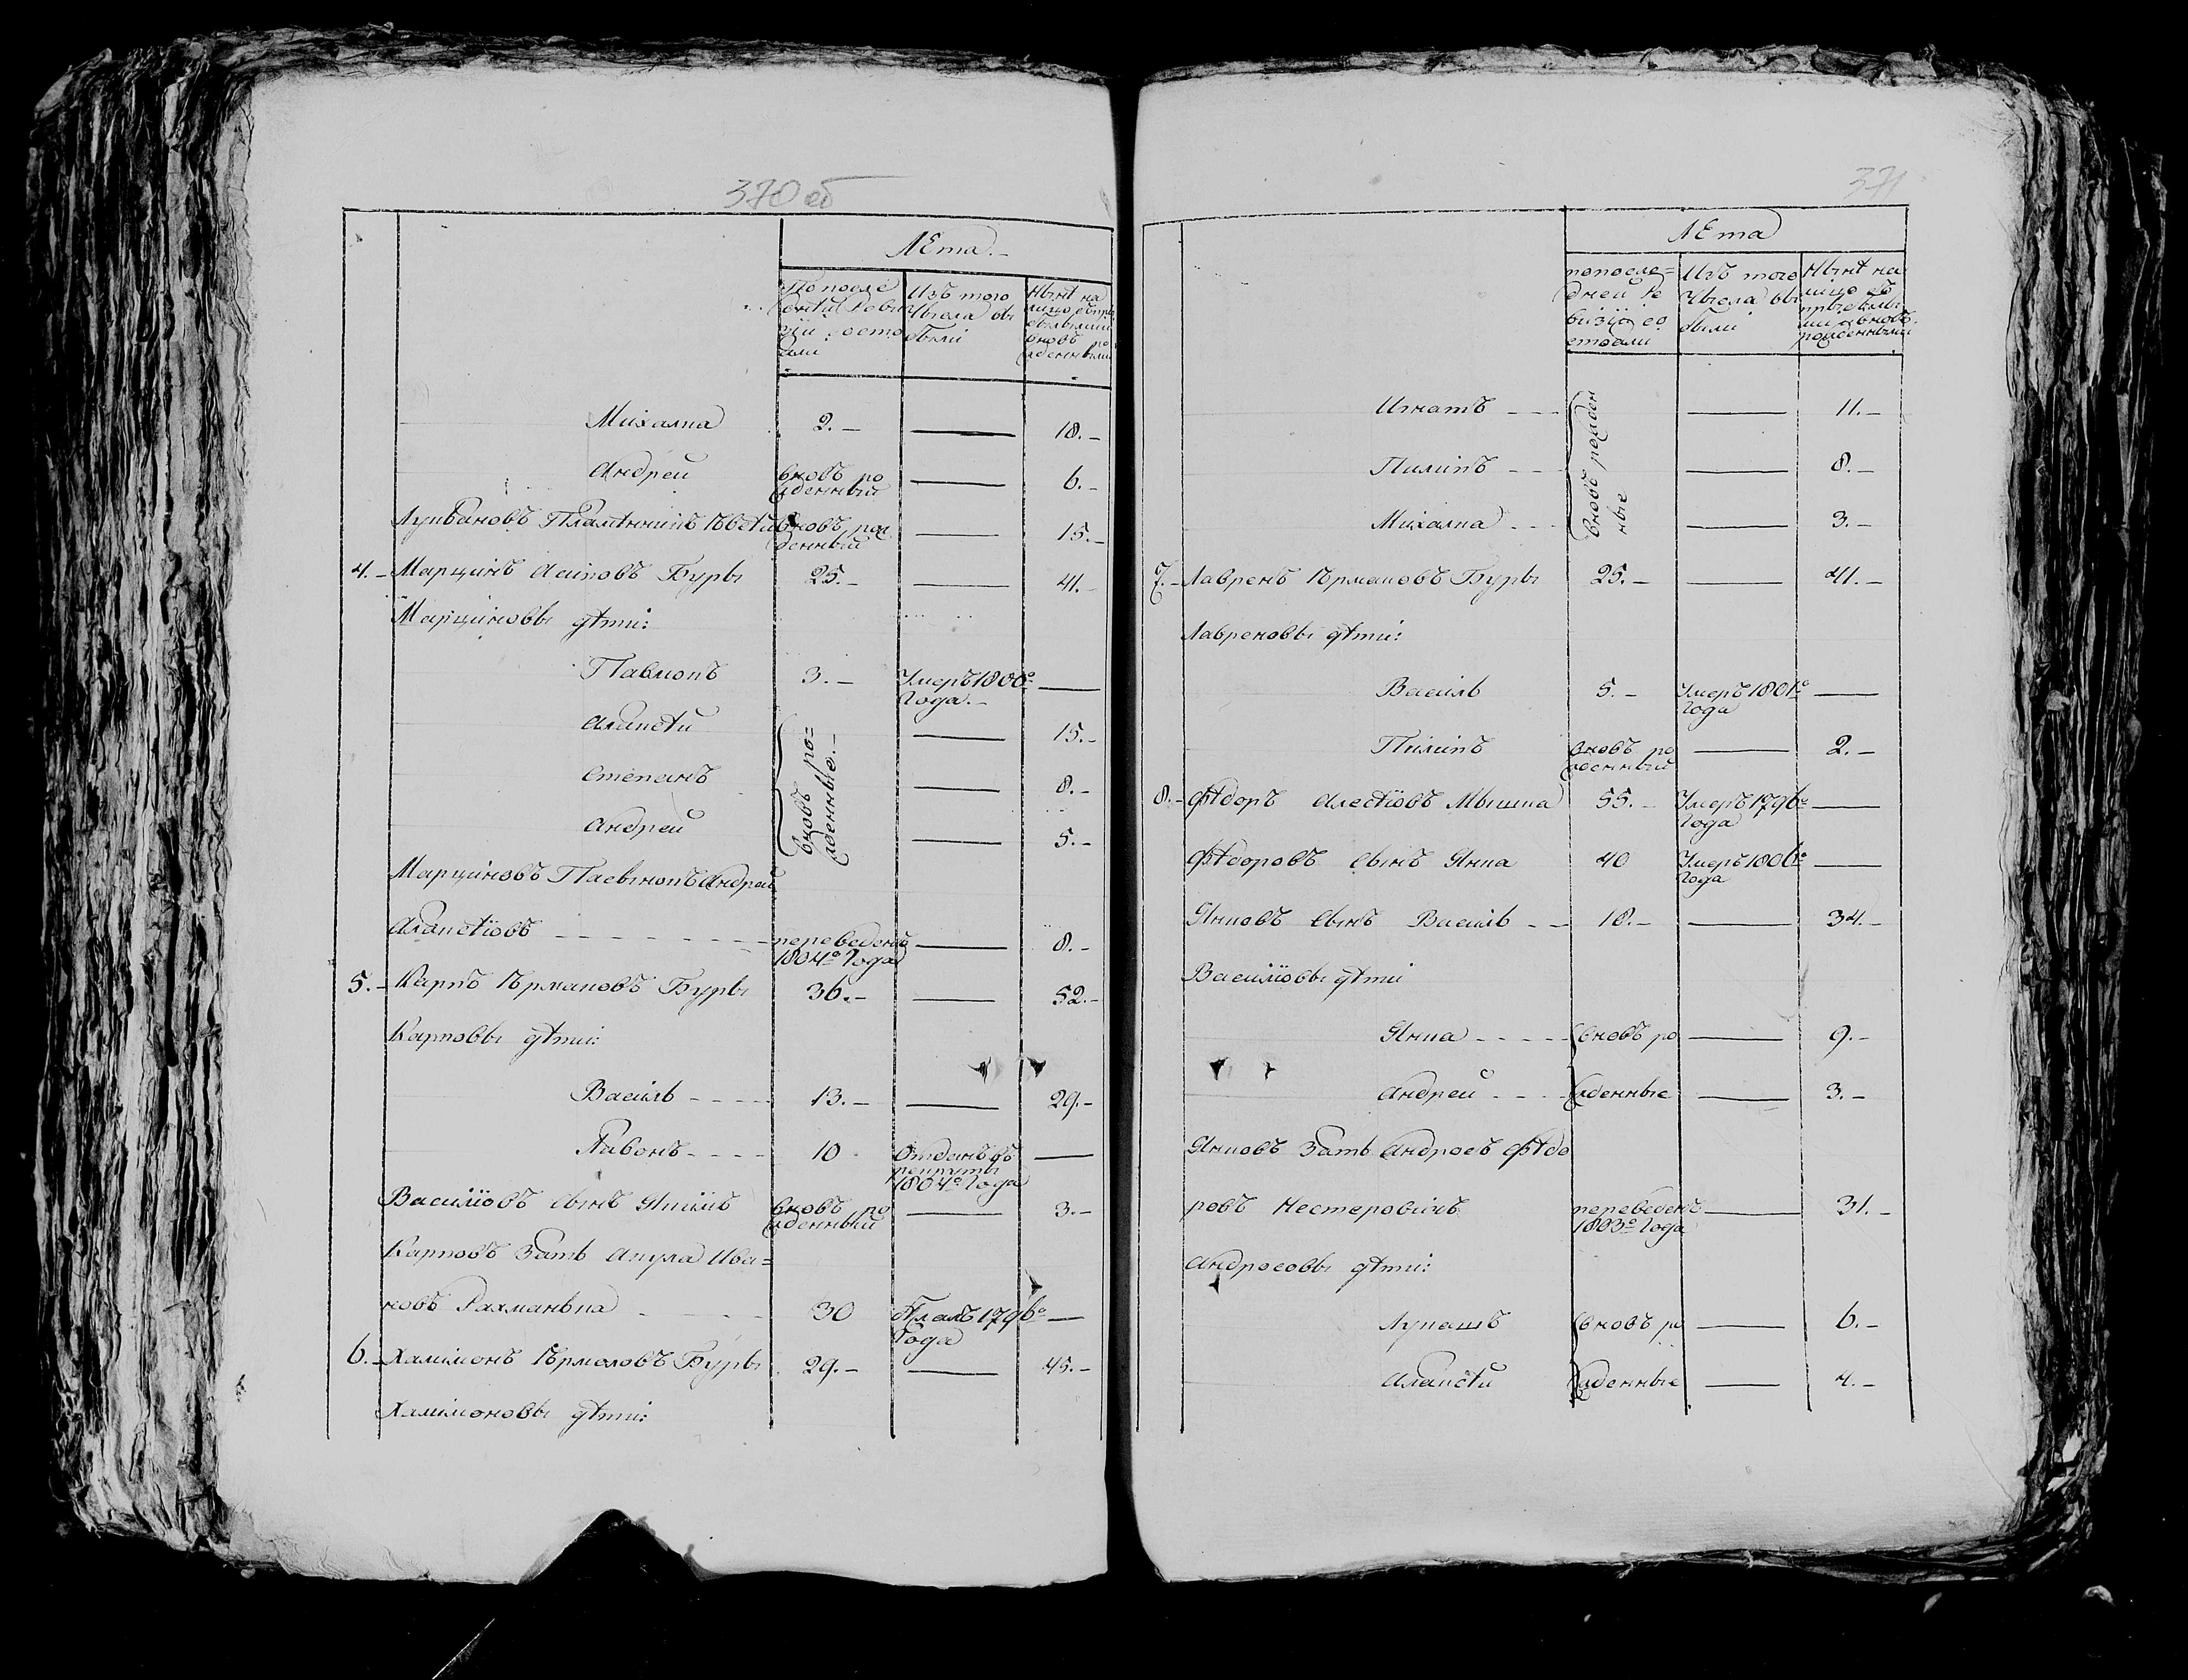 370 об
ЛѢта.
По после
дней Реви
зіи состо
яли
Изъ того
Числа вы
были
Нынѣ на
лицо съ при
бывшими
вновь ро
жденными
Михалка 2. — 18. —
Андрей вновь ро
жденный 6. —
вновь рож
денный 15. —
4. — Марцинъ Асиповъ Буръ 25. — 41. —
Марциновы дѣти:
3. — Умеръ 1800го
Года. —
Алексѣй 15. —
вновь ро=
жденные. —
Степанъ 8. —
Андрей 5. —
Марциновъ Пасынокъ Андрей
Алексѣювъ переведенъ
1804го Года 8. —
5. — Карпъ Ермаковъ Буръ 36. — 52. —
Карповы дѣти:
Василь 13. — 29. —
Лавонъ 10 Отданъ въ
рекруты
1804го Года
Василіовъ сынъ вновь ро
жденный 3. —
Карповъ Зать Акула Ива=
новъ Рахманька 30 1796го
Года
6. — Халимонъ Ермоловъ Буръ 29. — 45. —
Халимоновы дѣти:
371
ЛѢта
по после=
дней Ре
визіи со
стояли
Изъ того
Числа вы
были
Нынѣ на
лицо съ
прибывши
ми и вновь
рожденными
Игнатъ 11. —
вновь рожден
ные
Пилипъ 8. —
Михалка 3. —
7. — Лавренъ Ермаковъ Буръ 25. — 41. —
Лавреновы дѣти:
Василь 5. — Умеръ 1801го
Года
Пилипъ вновь ро
жденный 2. —
8. — Ѳѣдоръ Алесѣювъ Мышка 55. — Умеръ 1796го
Года
Ѳѣдоровъ сынъ Янка 40 Умеръ 1806го
Года
Янковъ сынъ Василь 18. — 34. —
Василіовы дѣти
Янка вновь ро 9. —
Андрей жденные 3. —
Янковъ Зать Андросъ Ѳѣдо
ровъ Нестеровичъ переведенъ
1803го Года 31. —
Андросовы дѣти:
Лукашъ вновь ро 6. —
Алексѣй жденные 4. —